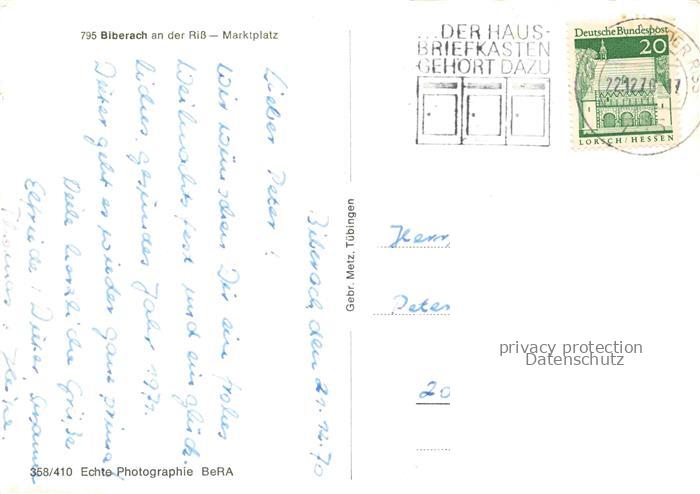 795 Biberach an der Riß — Marktplatz
...DER HAUS-
BRIEFKASTEN
GEHÖRT DAZU
Deutsche Bundespost
20
LORSCH/HESSEN
22.12.70-17
Biberach, den 21.12.70
Lieber Peter!
Wir wünschen Dir ein frohes
Weihnachtsfest und ein glück-
liches, gesundes Jahr 1971.
Dieter geht es wieder ganz prima!
Viele herzliche Grüße
Elfriede! Dieter,
Thomas
Gebr. Metz, Tübingen
Herr
Peter
20
privacy protection
Datenschutz
358/410 Echte Photographie BeRA